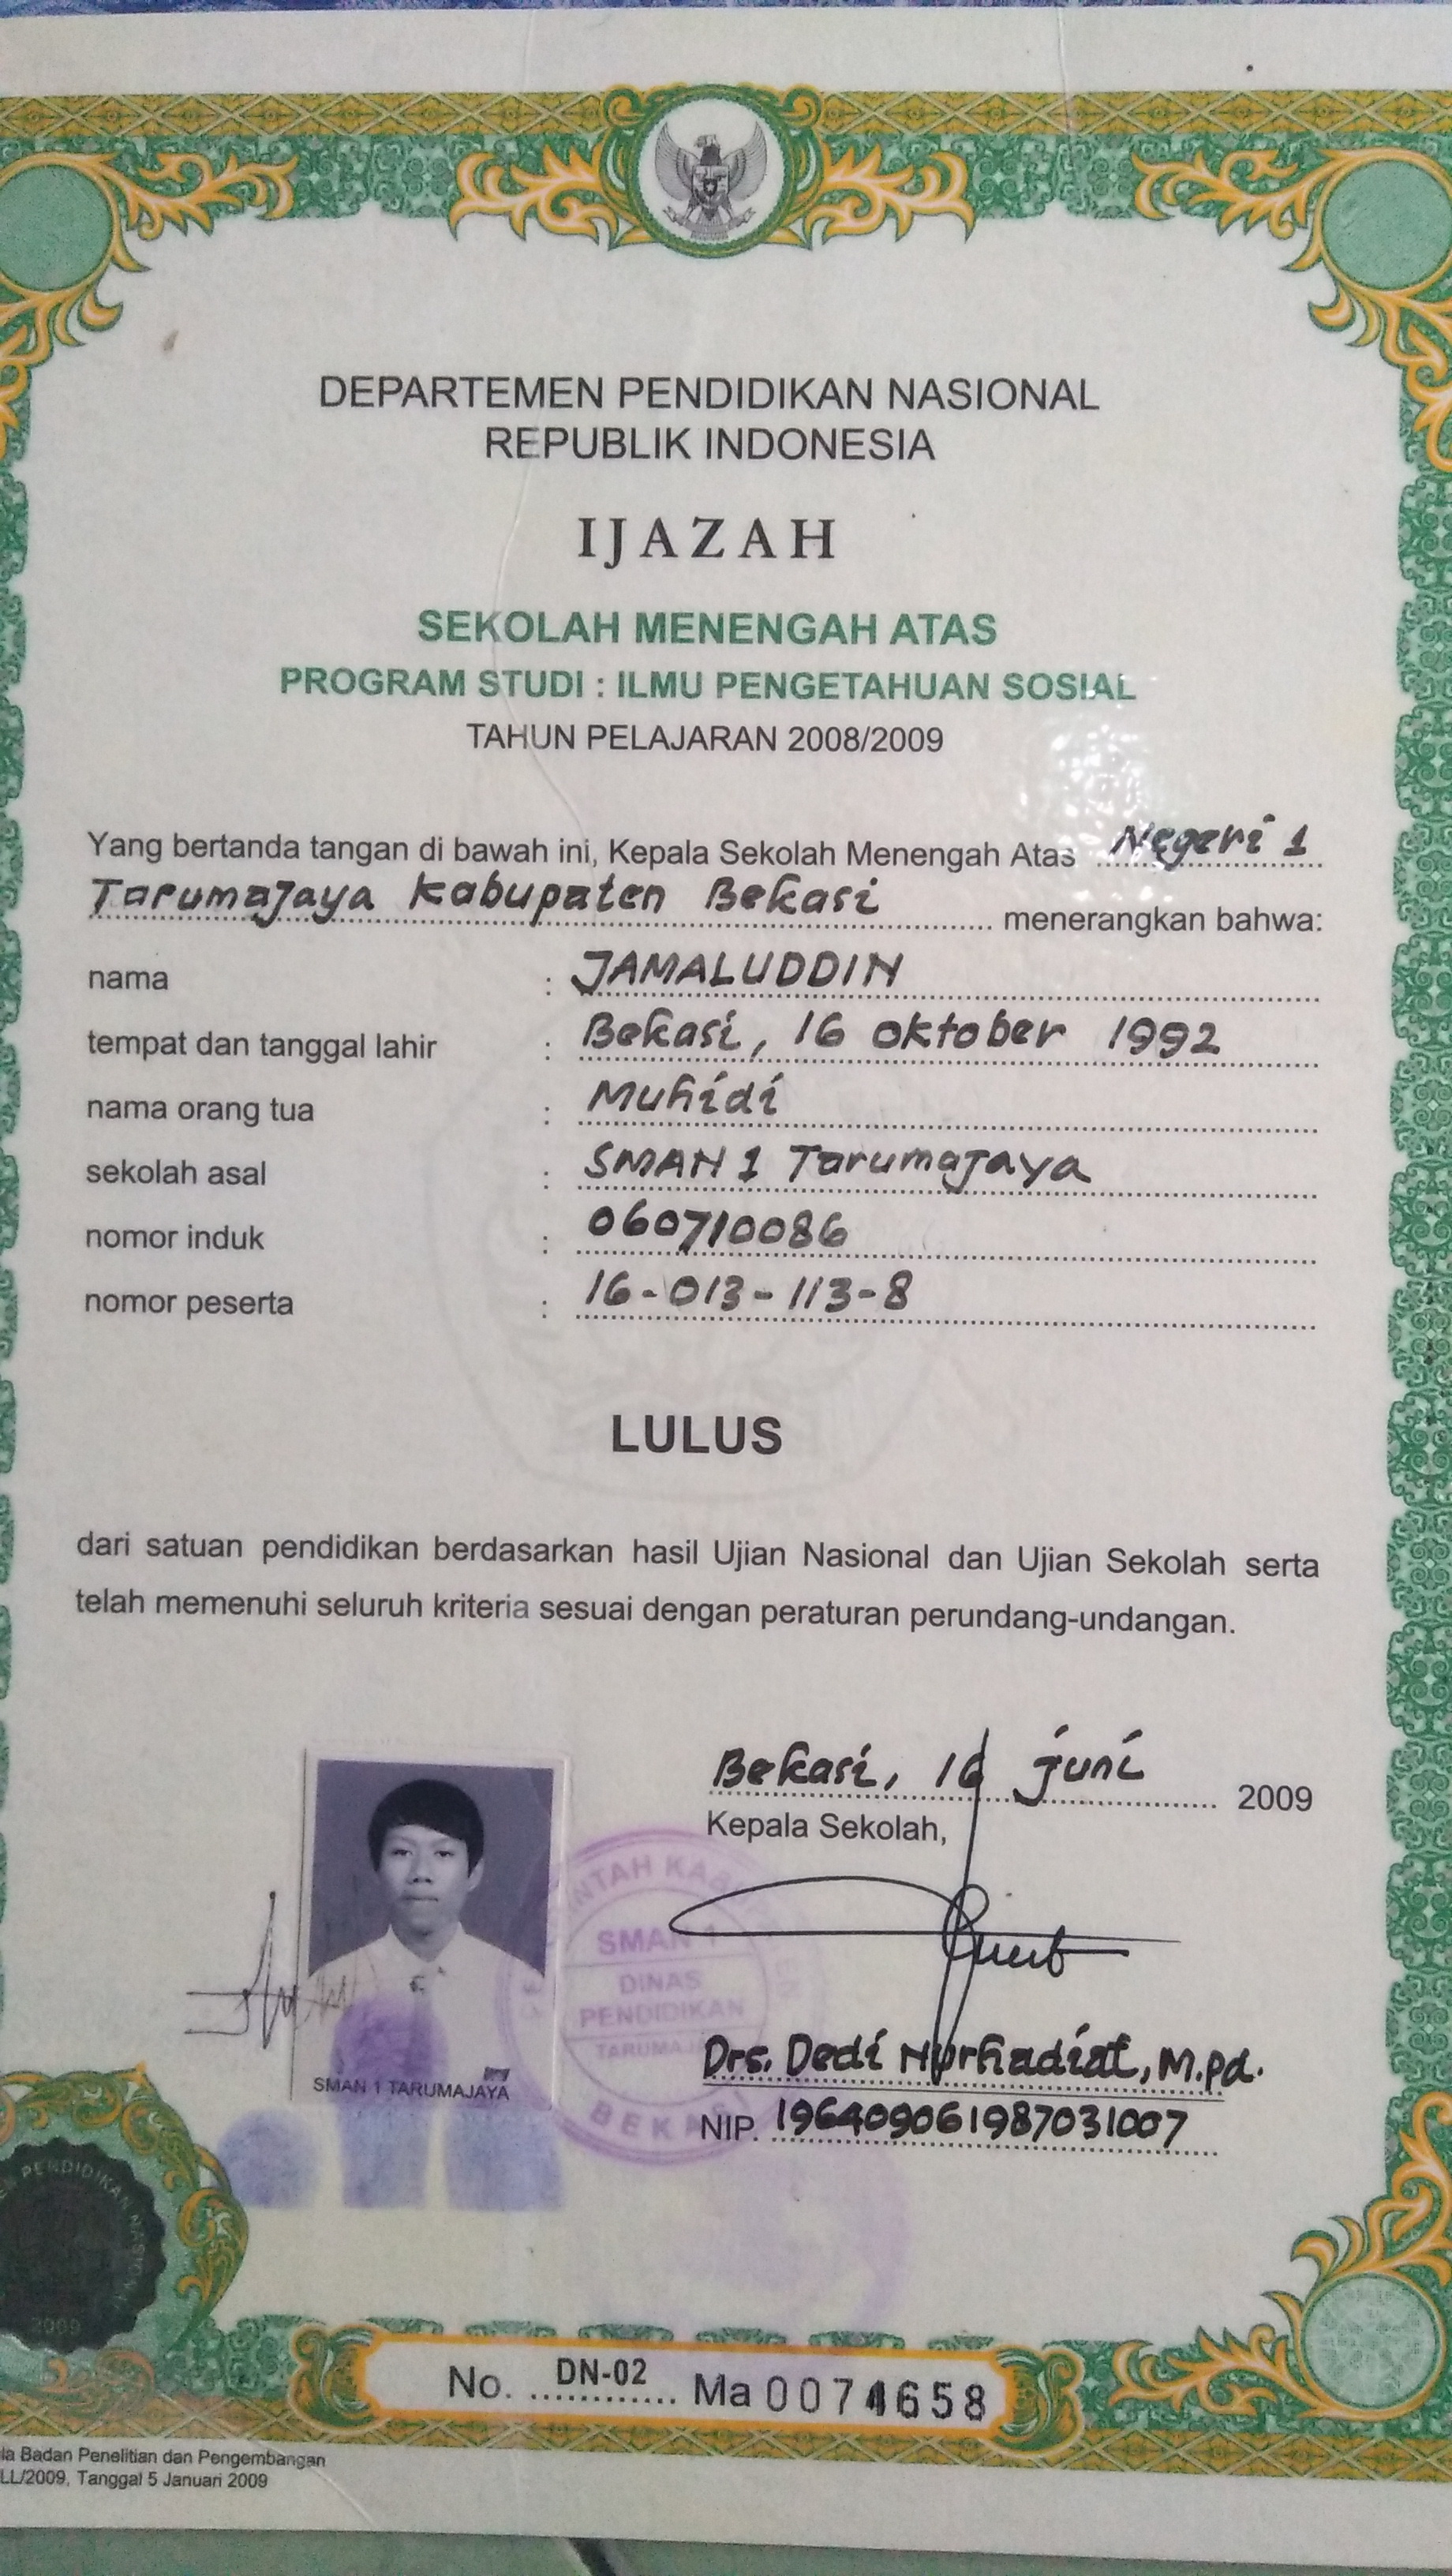 DEPARTEMEN PENDIDIKAN NASIONAL
REPUBLIK INDONESIA
IJAZAH
SEKOLAH MENENGAH ATAS
PROGRAM STUDI : ILMU PENGETAHUAN SOSIAL
TAHUN PELAJARAN 2008/2009
Yang bertanda tangan di bawah ini, Kepala Sekolah Menengah Atas Negeri 1
Tarumajaya Kabupaten Bekasi menerangkan bahwa:
nama : JAMALUDDIN
tempat dan tanggal lahir : Bekasi, 16 oktober 1992
nama orang tua : Muhidi
sekolah asal : SMAN 1 Tarumajaya
nomor induk : 060710086
nomor peserta : 16-013-113-8
LULUS
dari satuan pendidikan berdasarkan hasil Ujian Nasional dan Ujian Sekolah serta
telah memenuhi seluruh kriteria sesuai dengan peraturan perundang-undangan.
Bekasi, 16 juni 2009
Kepala Sekolah,
SMAN 1
DINAS
PENDIDIKAN
BEKASI
Drs. Dedi Nurhadiat, M.Pd.
NIP. 196409061987031007
SMAN 1 TARUMAJAYA
PENDIDIKAN NASIONAL
2009
No. DN-02 Ma 0074658
Badan Penelitian dan Pengembangan
LL/2009, Tanggal 5 Januari 2009